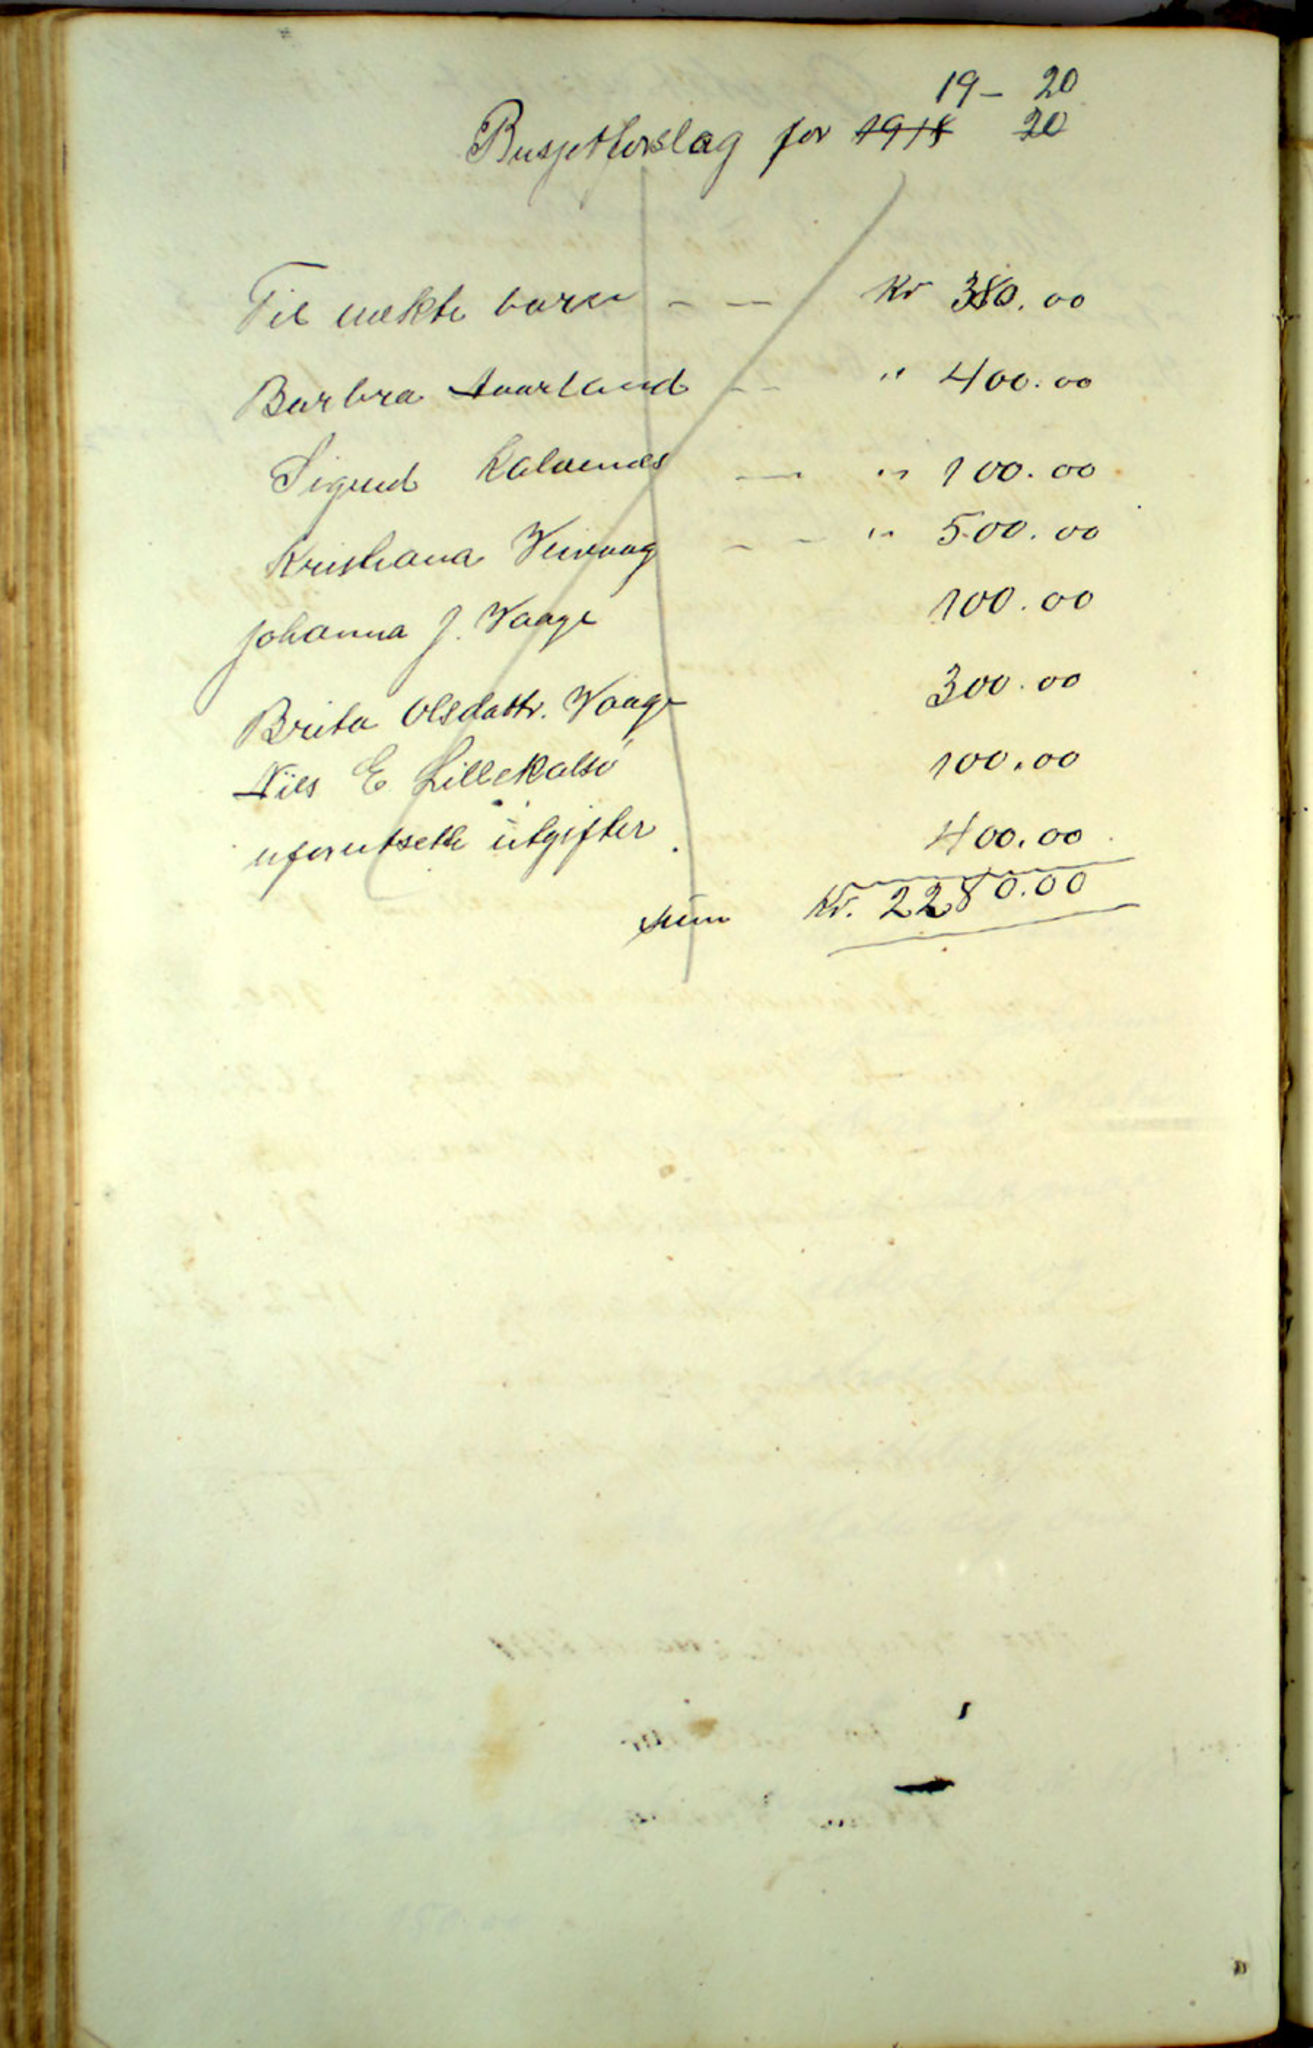 19 - 20
Busjetforslag for 1918 20
Til uekte barn - - Kr 380.00
Barbra Aaurland - - " 400.00
Sigrud Kalvenes - " 100.00
Kristiana Vinvaag - - " 500.00
Johanna J. Vaage 100.00
Brita Olsdattr. Vaage 300.00
Nils E Lillekalsö 100.00
uforutsette utgifter 400.00
sum Kr. 2280.00